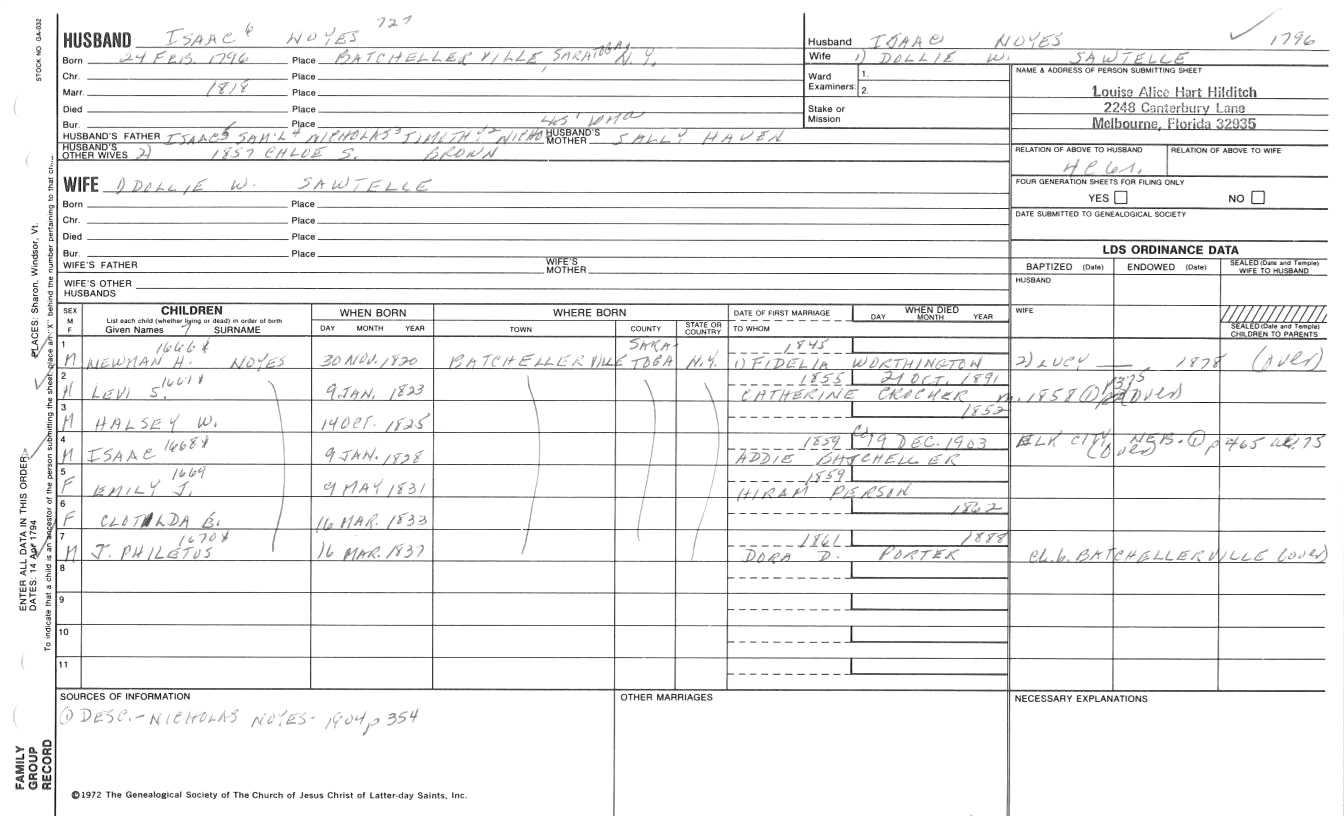 STOCK NO GA-032
HUSBAND ISAAC 6 NOYES 727
Born 24 FEB. 1796 Place BATCHELLERVILLE, SARATOGA, N.Y.
Chr. Place
Marr. 1818 Place
Died Place
Bur. Place
HUSBAND'S FATHER ISAAC 5 SAM'L 4 NICHOLAS 3 TIMOTHY 2 HUSBAND'S MOTHER SALLY HAVEN
HUSBAND'S OTHER WIVES 2) 1857 CHLOE S. BROWN
WIFE 1) DOLLIE W. SAWTELLE
Born Place
Chr. Place
Died Place
Bur. Place
WIFE'S FATHER WIFE'S MOTHER
WIFE'S OTHER HUSBANDS
Husband ISAAC NOYES 1796
Wife 1) DOLLIE W. SAWTELLE
Ward Examiners: 1. 2.
Stake or Mission
NAME & ADDRESS OF PERSON SUBMITTING SHEET
Louise Alice Hart Hilditch
2248 Canterbury Lane
Melbourne, Florida 32935
RELATION OF ABOVE TO HUSBAND RELATION OF ABOVE TO WIFE
FOUR GENERATION SHEETS FOR FILING ONLY
YES NO
DATE SUBMITTED TO GENEALOGICAL SOCIETY
LDS ORDINANCE DATA
BAPTIZED (Date) ENDOWED (Date) SEALED (Date and Temple) WIFE TO HUSBAND
HUSBAND
WIFE
SEALED (Date and Temple) CHILDREN TO PARENTS
SEX M F
CHILDREN
List each child (whether living or dead) in order of birth
Given Names SURNAME
WHEN BORN DAY MONTH YEAR
WHERE BORN TOWN COUNTY STATE OR COUNTRY
DATE OF FIRST MARRIAGE TO WHOM
WHEN DIED DAY MONTH YEAR
1 M 1666 NEWMAN H. NOYES 30 NOV. 1820 BATCHELLERVILLE SARATOGA N.Y. 1845 1) FIDELIA WORTHINGTON 2) LUCY 1878 (over)
2 M LEVI S. 9 JAN. 1823 1855 21 OCT. 1891 CATHERINE CROCHER m. 1858 (over)
3 M HALSEY W. 14 OCT. 1825 1852
4 M ISAAC 1668 9 JAN. 1828 1859 19 DEC. 1903 ADDIE BATCHELLER ELK CITY, NEB. (over) p 465
5 F 1669 EMILY J. 9 MAY 1831 1859 HIRAM PERSON
6 F CLOTILDA B. 16 MAR. 1833 1862
7 M 1670 J. PHILETUS 16 MAR. 1837 1861 1888 DORA D. PORTER ch. b. BATCHELLERVILLE (over)
8
9
10
11
SOURCES OF INFORMATION
1) DESC.- NICHOLAS NOYES- 1904 p 354
OTHER MARRIAGES
NECESSARY EXPLANATIONS
©1972 The Genealogical Society of The Church of Jesus Christ of Latter-day Saints, Inc.
FAMILY GROUP RECORD
ENTER ALL DATA IN THIS ORDER:
DATES: 14 Apr 1794
PLACES: Sharon, Windsor, Vt.
To indicate that a child is an ancestor of the person submitting the sheet, place an "X" behind the number pertaining to that